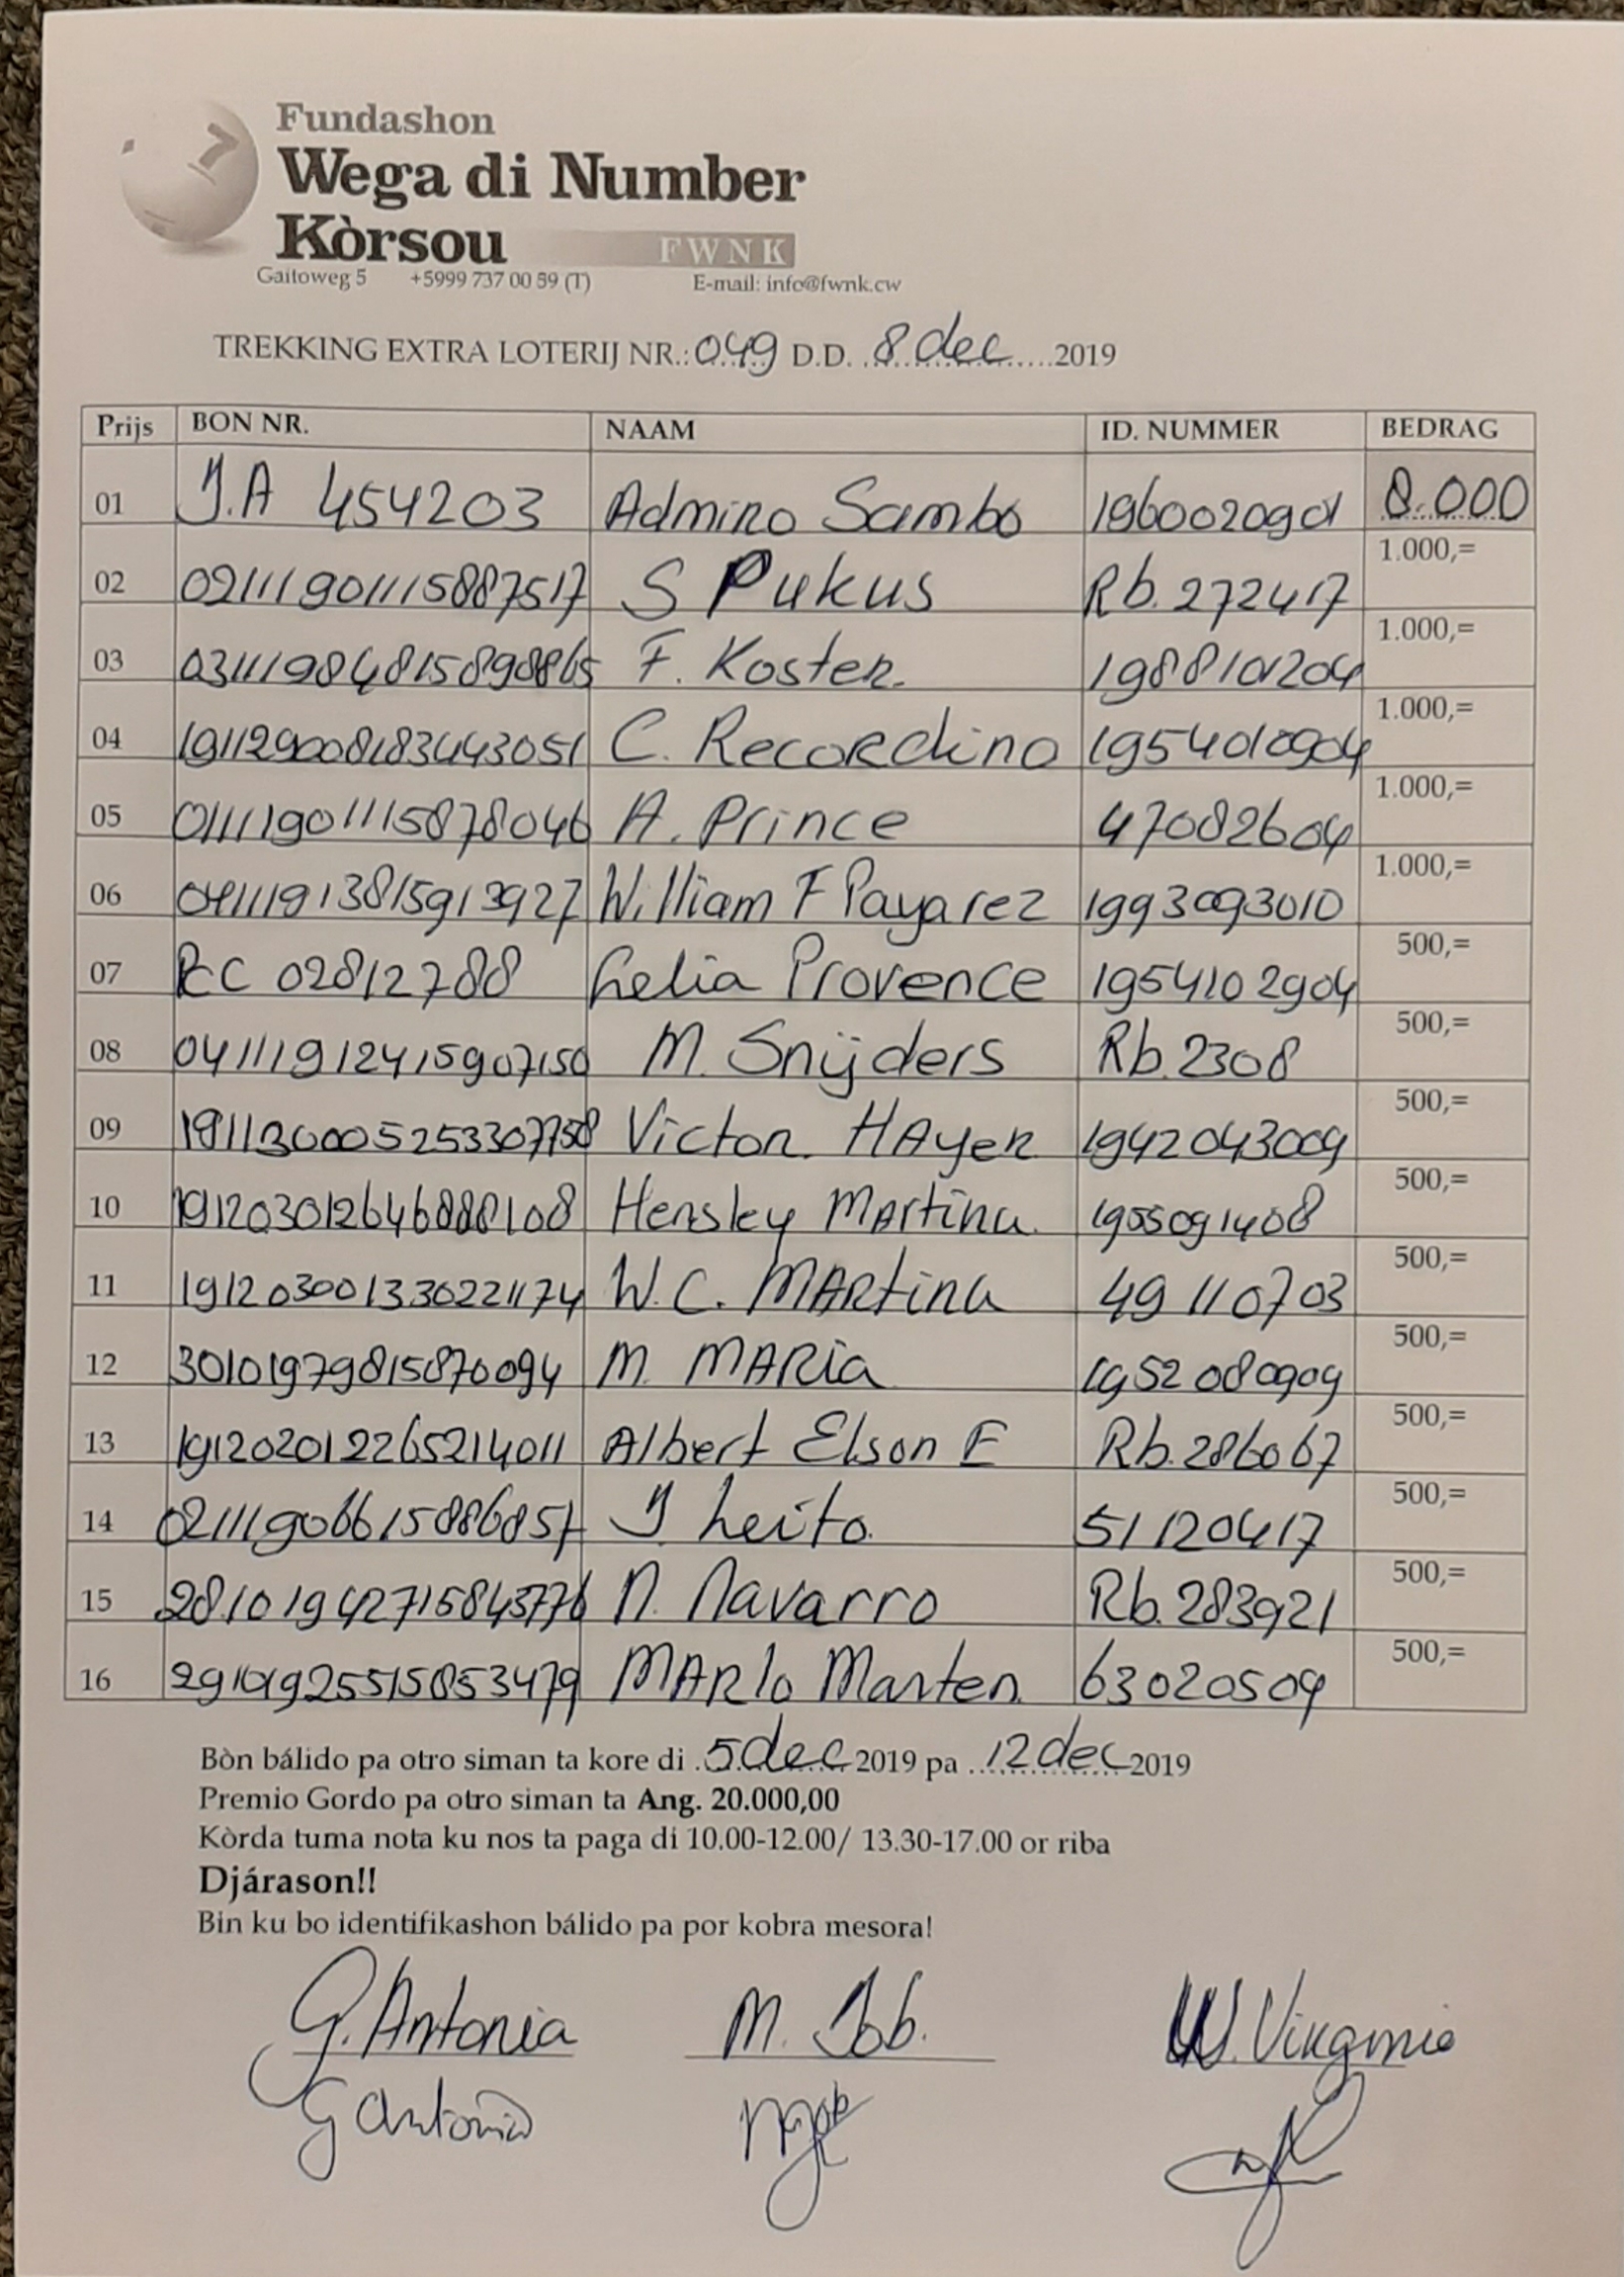 Fundashon
Wega di Number
Kòrsou FWNK
Gaitoweg 5 +5999 737 00 59 (T) E-mail: info@fwnk.cw
TREKKING EXTRA LOTERIJ NR.: 049 D.D. 8 dec 2019
Prijs BON NR. NAAM ID. NUMMER BEDRAG
01 J.A 454203 Admiro Sambo 1960020901 8.000
02 0211119011115887517 S Pukus Rb. 272417 1.000,=
03 F. Koster 1988101204 1.000,=
04 191129008183443051 C. Recordino 1954010904 1.000,=
05 A. Prince 47082604 1.000,=
06 William F Payarez 1993093010 1.000,=
07 RC 02812788 Lelia Provence 1954102904 500,=
08 041111912415907150 M. Snijders Rb. 2308 500,=
09 Victor HAyer 1942043009 500,=
10 191203012646888108 Hensley Martina 1955091408 500,=
11 191203001330221174 W.C. MARtina 49110703 500,=
12 30101979815870094 M. MARia 1952080909 500,=
13 1912020122265214011 Albert Elson E Rb. 286067 500,=
14 J Leito 51120417 500,=
15 28101942715843776 N. Navarro Rb. 283921 500,=
16 MARlo Marten 63020509 500,=
Bòn bálido pa otro siman ta kore di 5 dec 2019 pa 12 dec 2019
Premio Gordo pa otro siman ta Ang. 20.000,00
Kòrda tuma nota ku nos ta paga di 10.00-12.00/ 13.30-17.00 or riba
Djárason!!
Bin ku bo identifikashon bálido pa por kobra mesora!
G. Antonia M. Job. W. Virginie
G Antonia